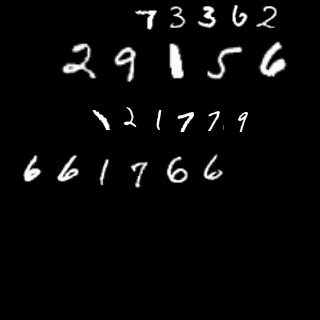 73362
29156
121779
661766